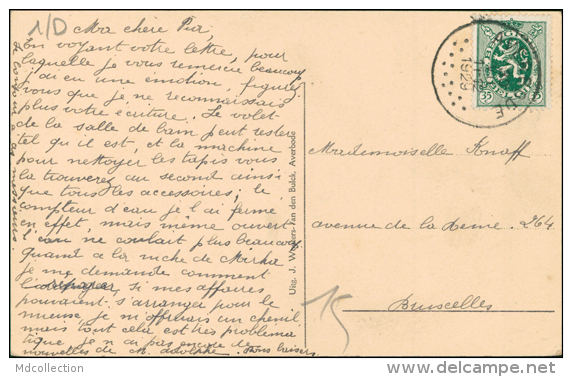 1/D
Ma chère Pia,
En voyant votre lettre, pour
laquelle je vous remercie beaucoup
j'ai eu une émotion, figurez
vous que je ne reconnaissais
plus votre écriture. Le volet
de la salle de bain peut rester
tel qu'il est, et la machine
pour nettoyer les tapis vous
la trouverez au second ainsi
que tous les accessoires; le
compteur d'eau je l'ai fermé
en effet, mais même ouvert
l'eau ne coulait plus beaucoup
quant à la niche de Mirka
je me demande comment
si mes affaires
pouvaient s'arranger pour le
mieux je m'offrirais un chenil
mais tout cela est très problèma
tique, je n'ai pas encore de
nouvelles de M. Adolphe. Bons baisers.
Uitg. J. Van den Bulck, Averbode
BELGIQUE
35
35
1929
DE
Mademoiselle Knaff
avenue de la Reine. 264
Bruxelles
15
Mdcollection
www.delcampe.net